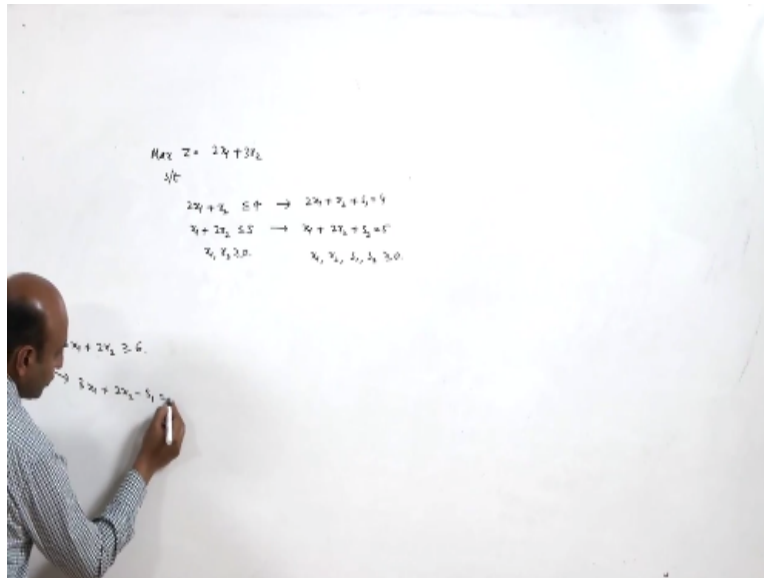 Max Z = 2x₁ + 3x₂
s/t
2x₁ + x₂ ≤ 4 → 2x₁ + x₂ + s₁ = 4
x₁ + 2x₂ ≤ 5 → x₁ + 2x₂ + s₂ = 5
x₁, x₂ ≥ 0. x₁, x₂, s₁, s₂ ≥ 0.
x₁ + 2x₂ ≥ 6.
→ 3x₁ + 2x₂ - s₁ =